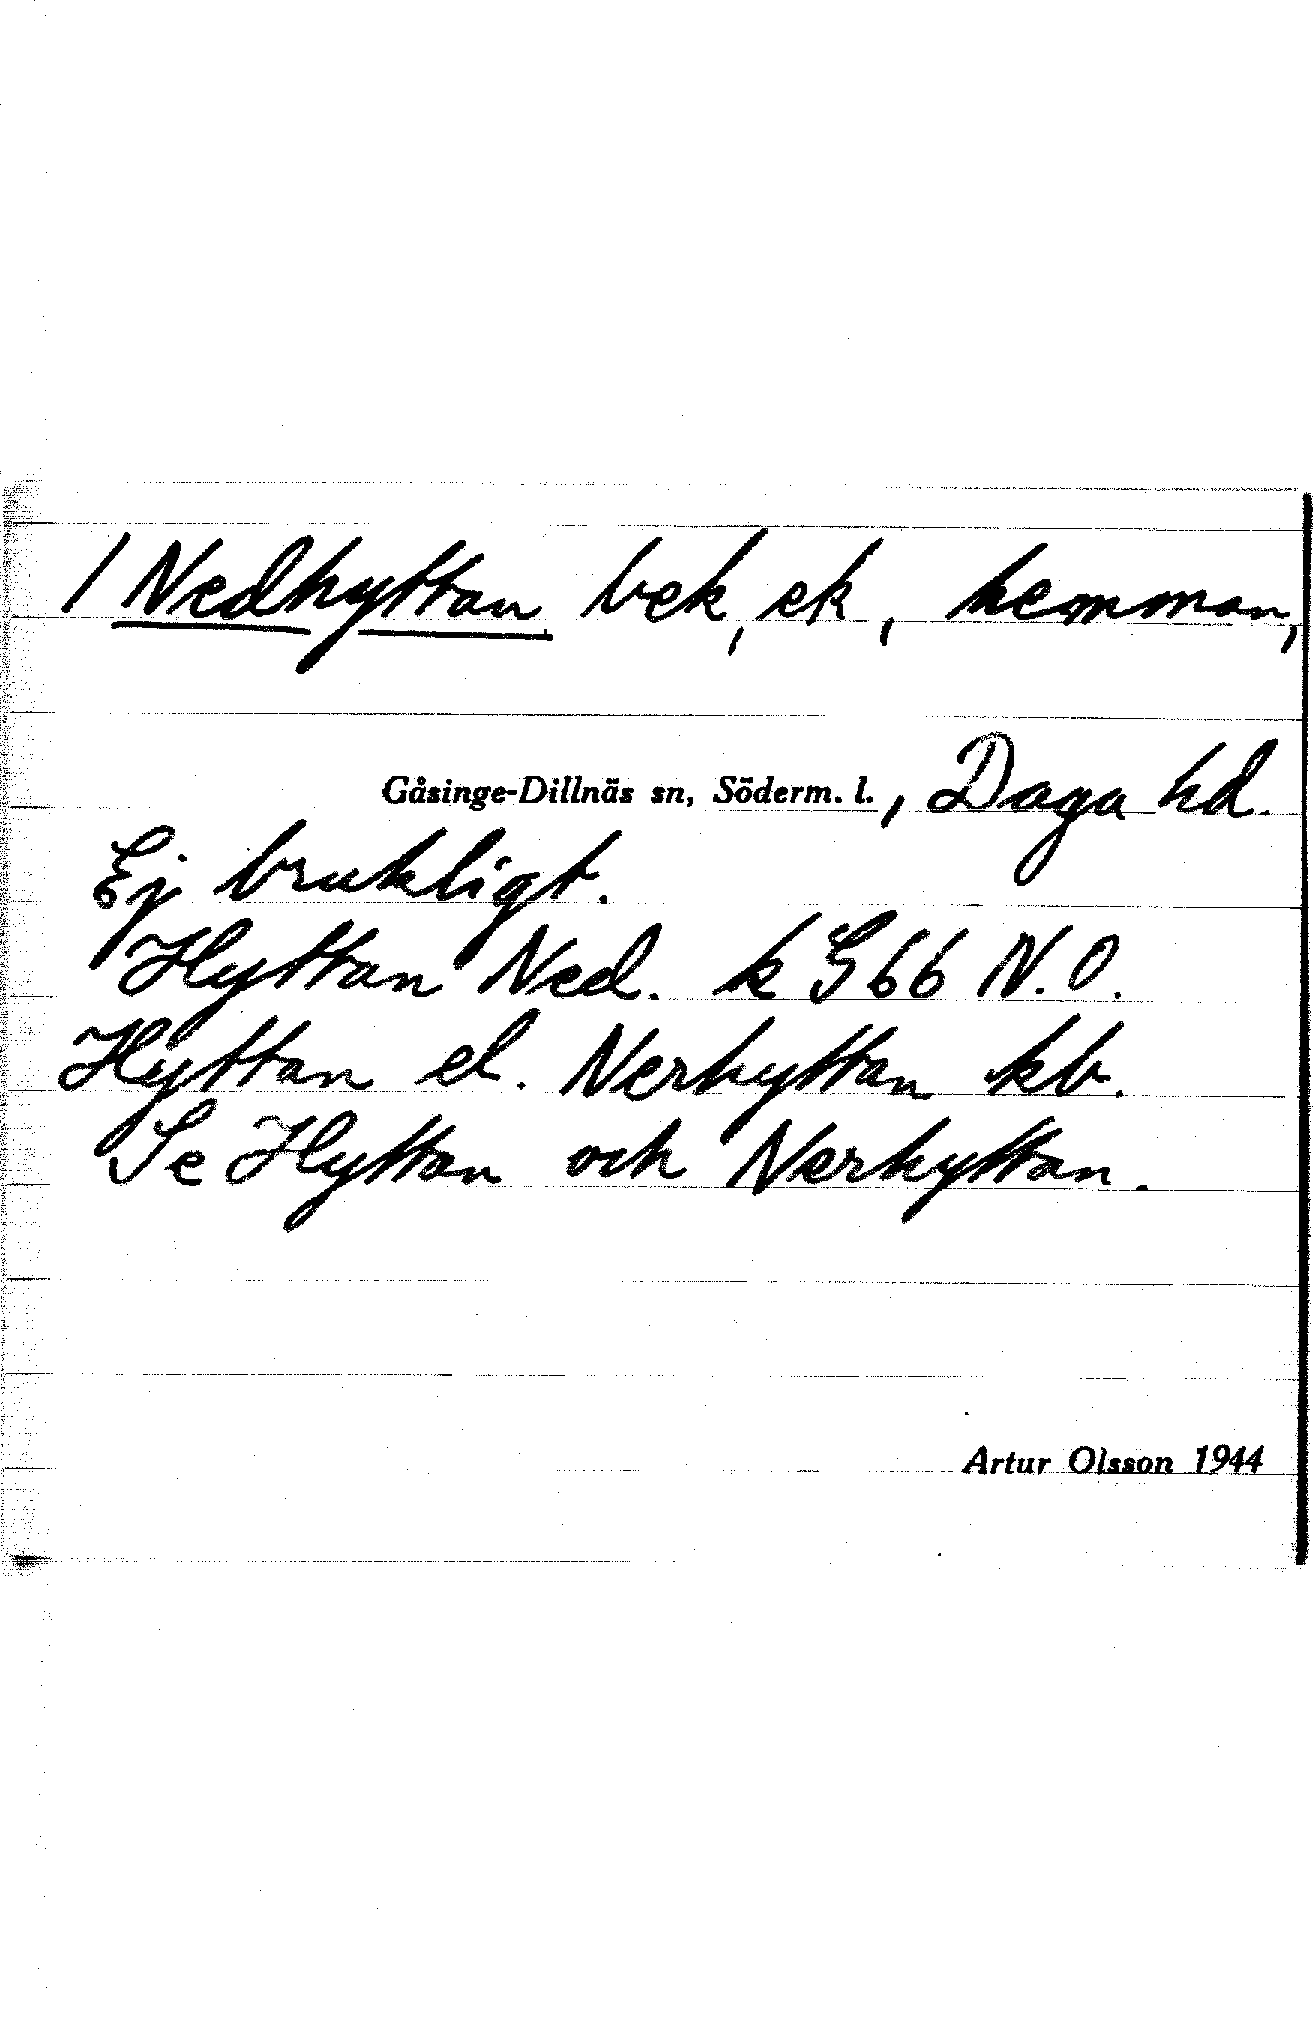 / Nedhyttan bek, ek, hemman,
Gåsinge-Dillnäs sn, Söderm. l., Daga hd.
Ej brukligt.
Hyttan Ned. k G66 N.O.
Hyttan el. Nerhyttan kb.
Se Hyttan och Nerhyttan.
Artur Olsson 1944